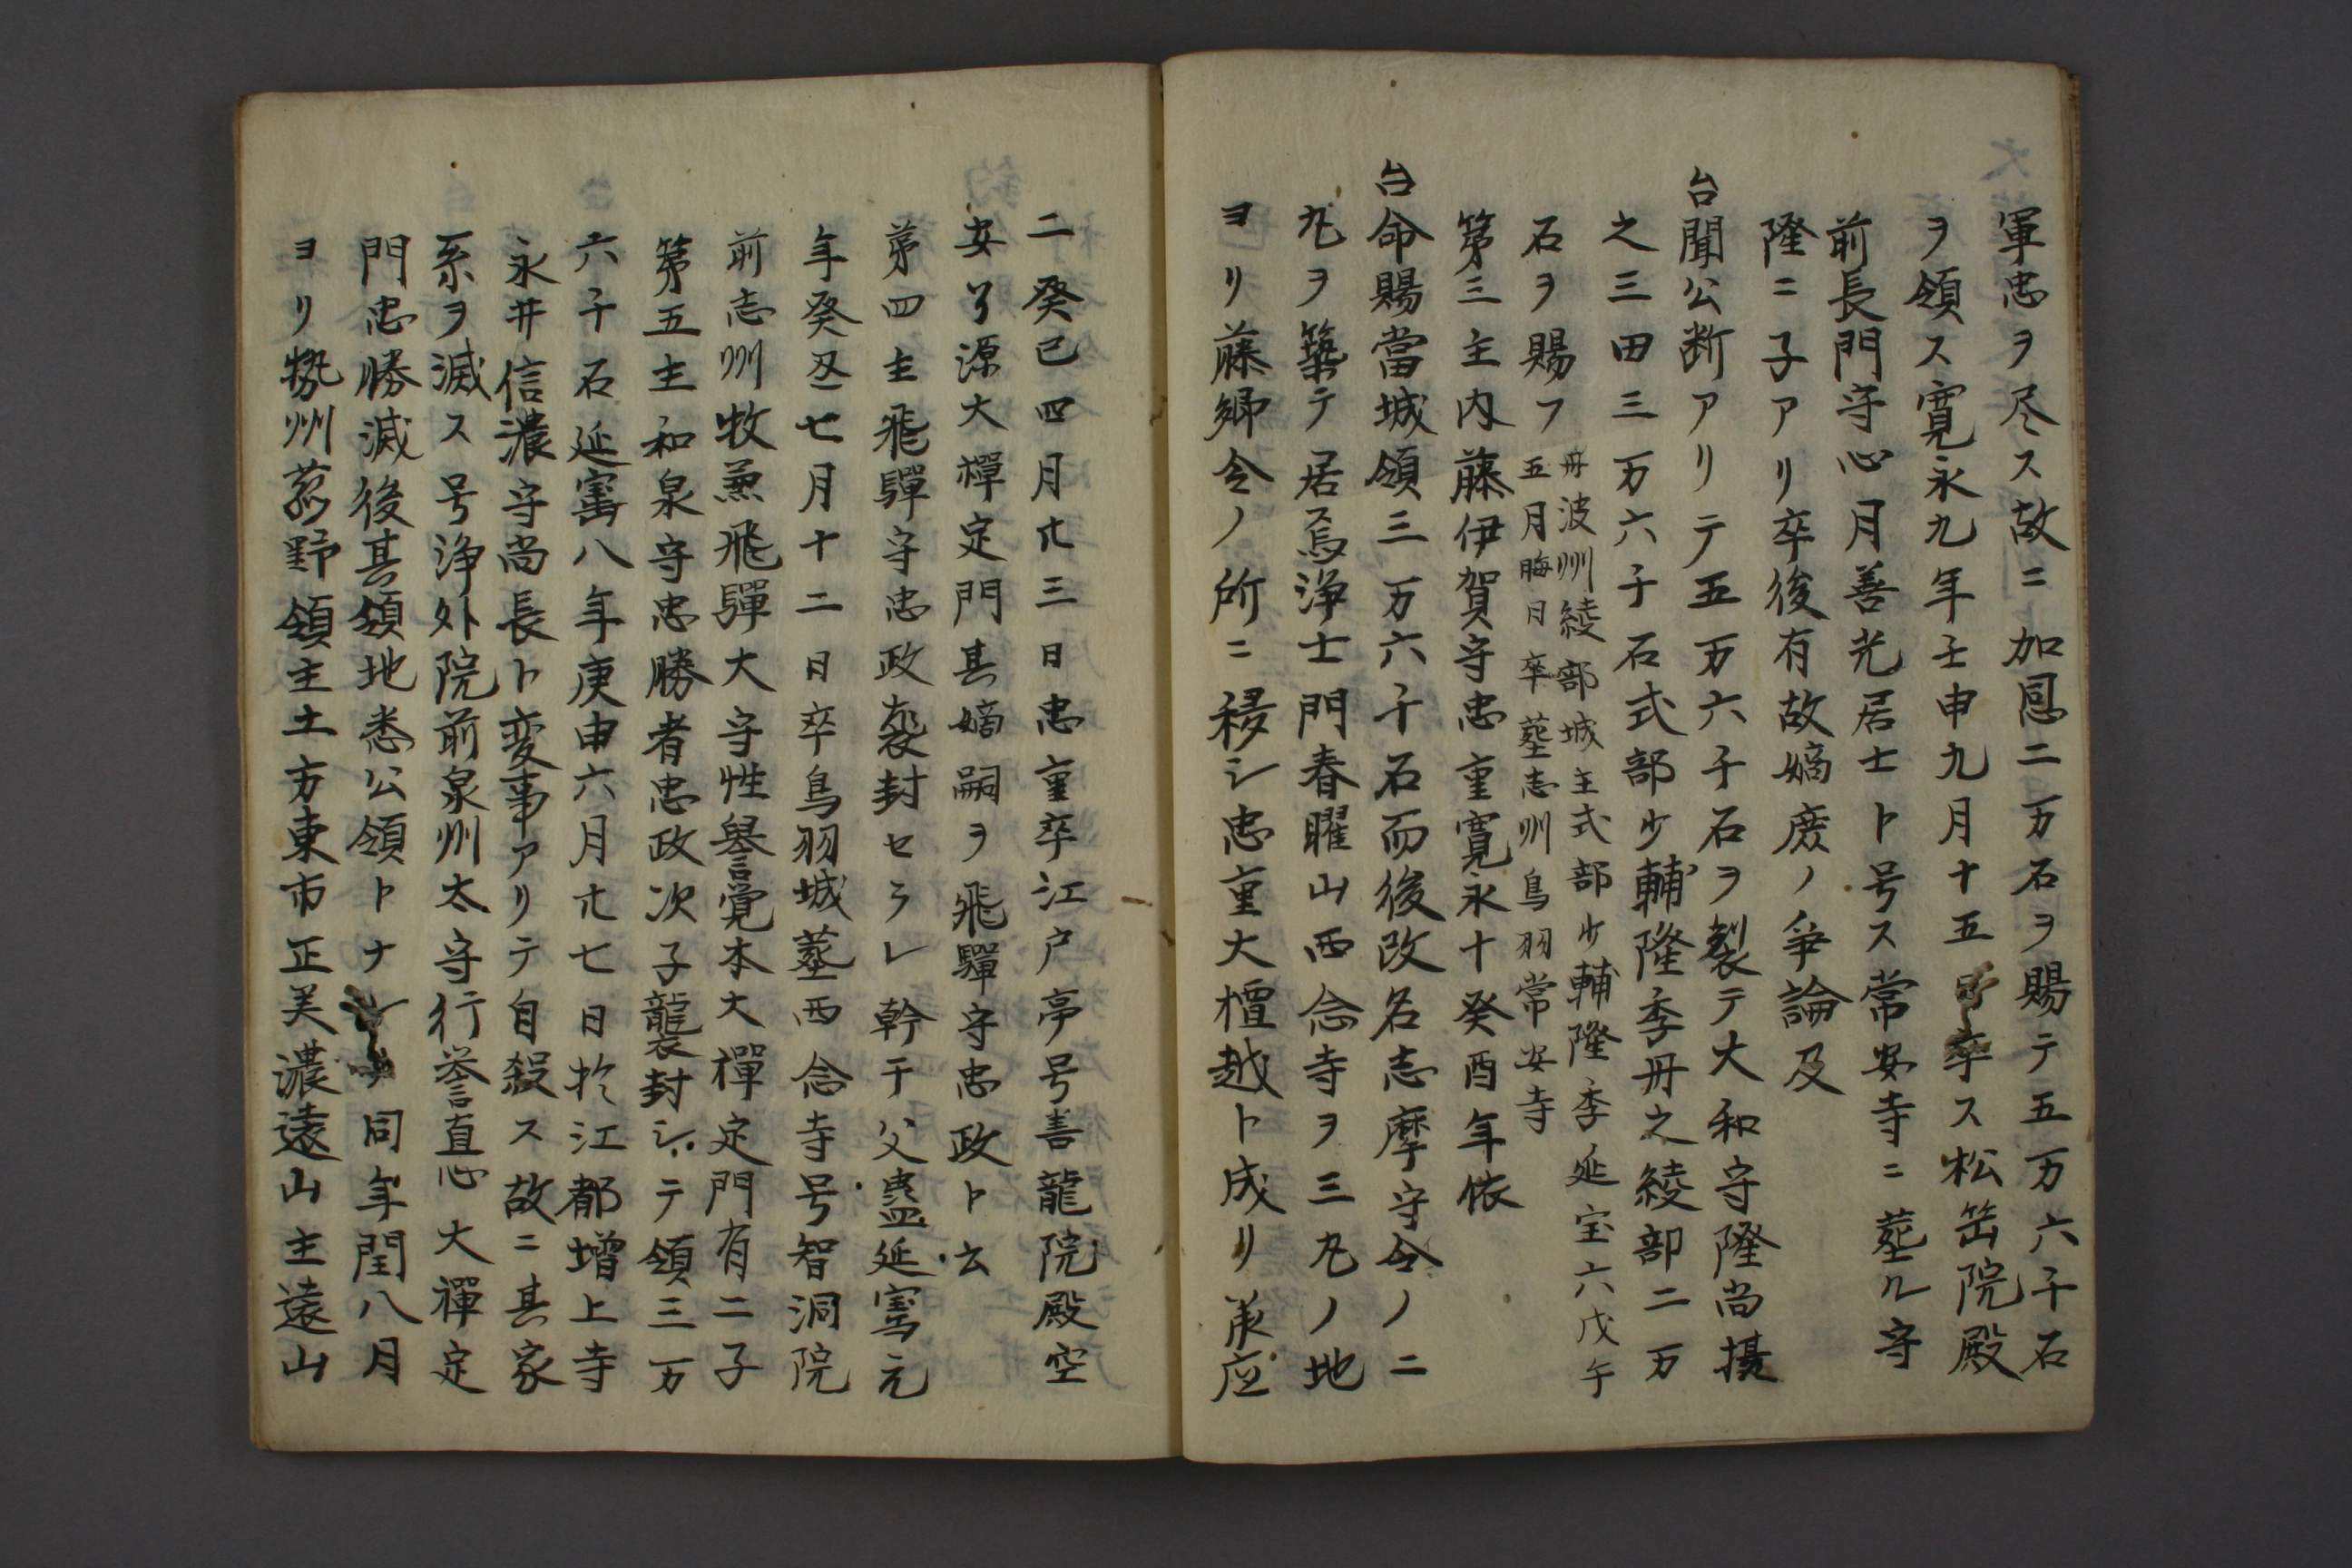 軍忠ヲ尽ス故ニ加恩二万石ヲ賜テ五万六千石
ヲ領ス寛永九年壬申九月十五日卒ス松岳院殿
前長門守心月善光居士ト号ス常安寺ニ葬ル守
隆ニ子アリ卒後有故嫡庶ノ争論及
台聞公断アリテ五万六千石ヲ製テ大和守隆尚摂
之三田三万六千石式部少輔隆季丹之綾部二万
石ヲ賜フ
丹波州綾部城主式部少輔隆季延宝六戊午
五月晦日卒葬志州鳥羽常安寺
第三主内藤伊賀守忠重寛永十癸酉年依
台命賜當城領三万六千石而後改名志摩守今ノ二
丸ヲ築テ居焉浄土門春曜山西念寺ヲ三丸ノ地
ヨリ藤郷今ノ所ニ移シ忠重大檀越ト成リ承応
二癸巳四月廿三日忠重卒江戸亭号善龍院殿空
安了源大禅定門其嫡嗣ヲ飛騨守忠政ト云
第四主飛騨守忠政襲封セラレ幹于父蠱延寳元
年癸丑七月十二日卒鳥羽城葬西念寺号智洞院
前志州牧兼飛騨大守性誉覚本大禅定門有二子
第五主和泉守忠勝者忠政次子襲封シテ領三万
六千石延寳八年庚申六月廿七日於江都増上寺
永井信濃守尚長ト変事アリテ自殺ス故ニ其家
系ヲ滅ス号浄外院前泉州太守行誉直心大禅定
門忠勝滅後其領地悉公領トナシ同年閏八月
ヨリ勢州菰野領主土方東市正美濃遠山主遠山